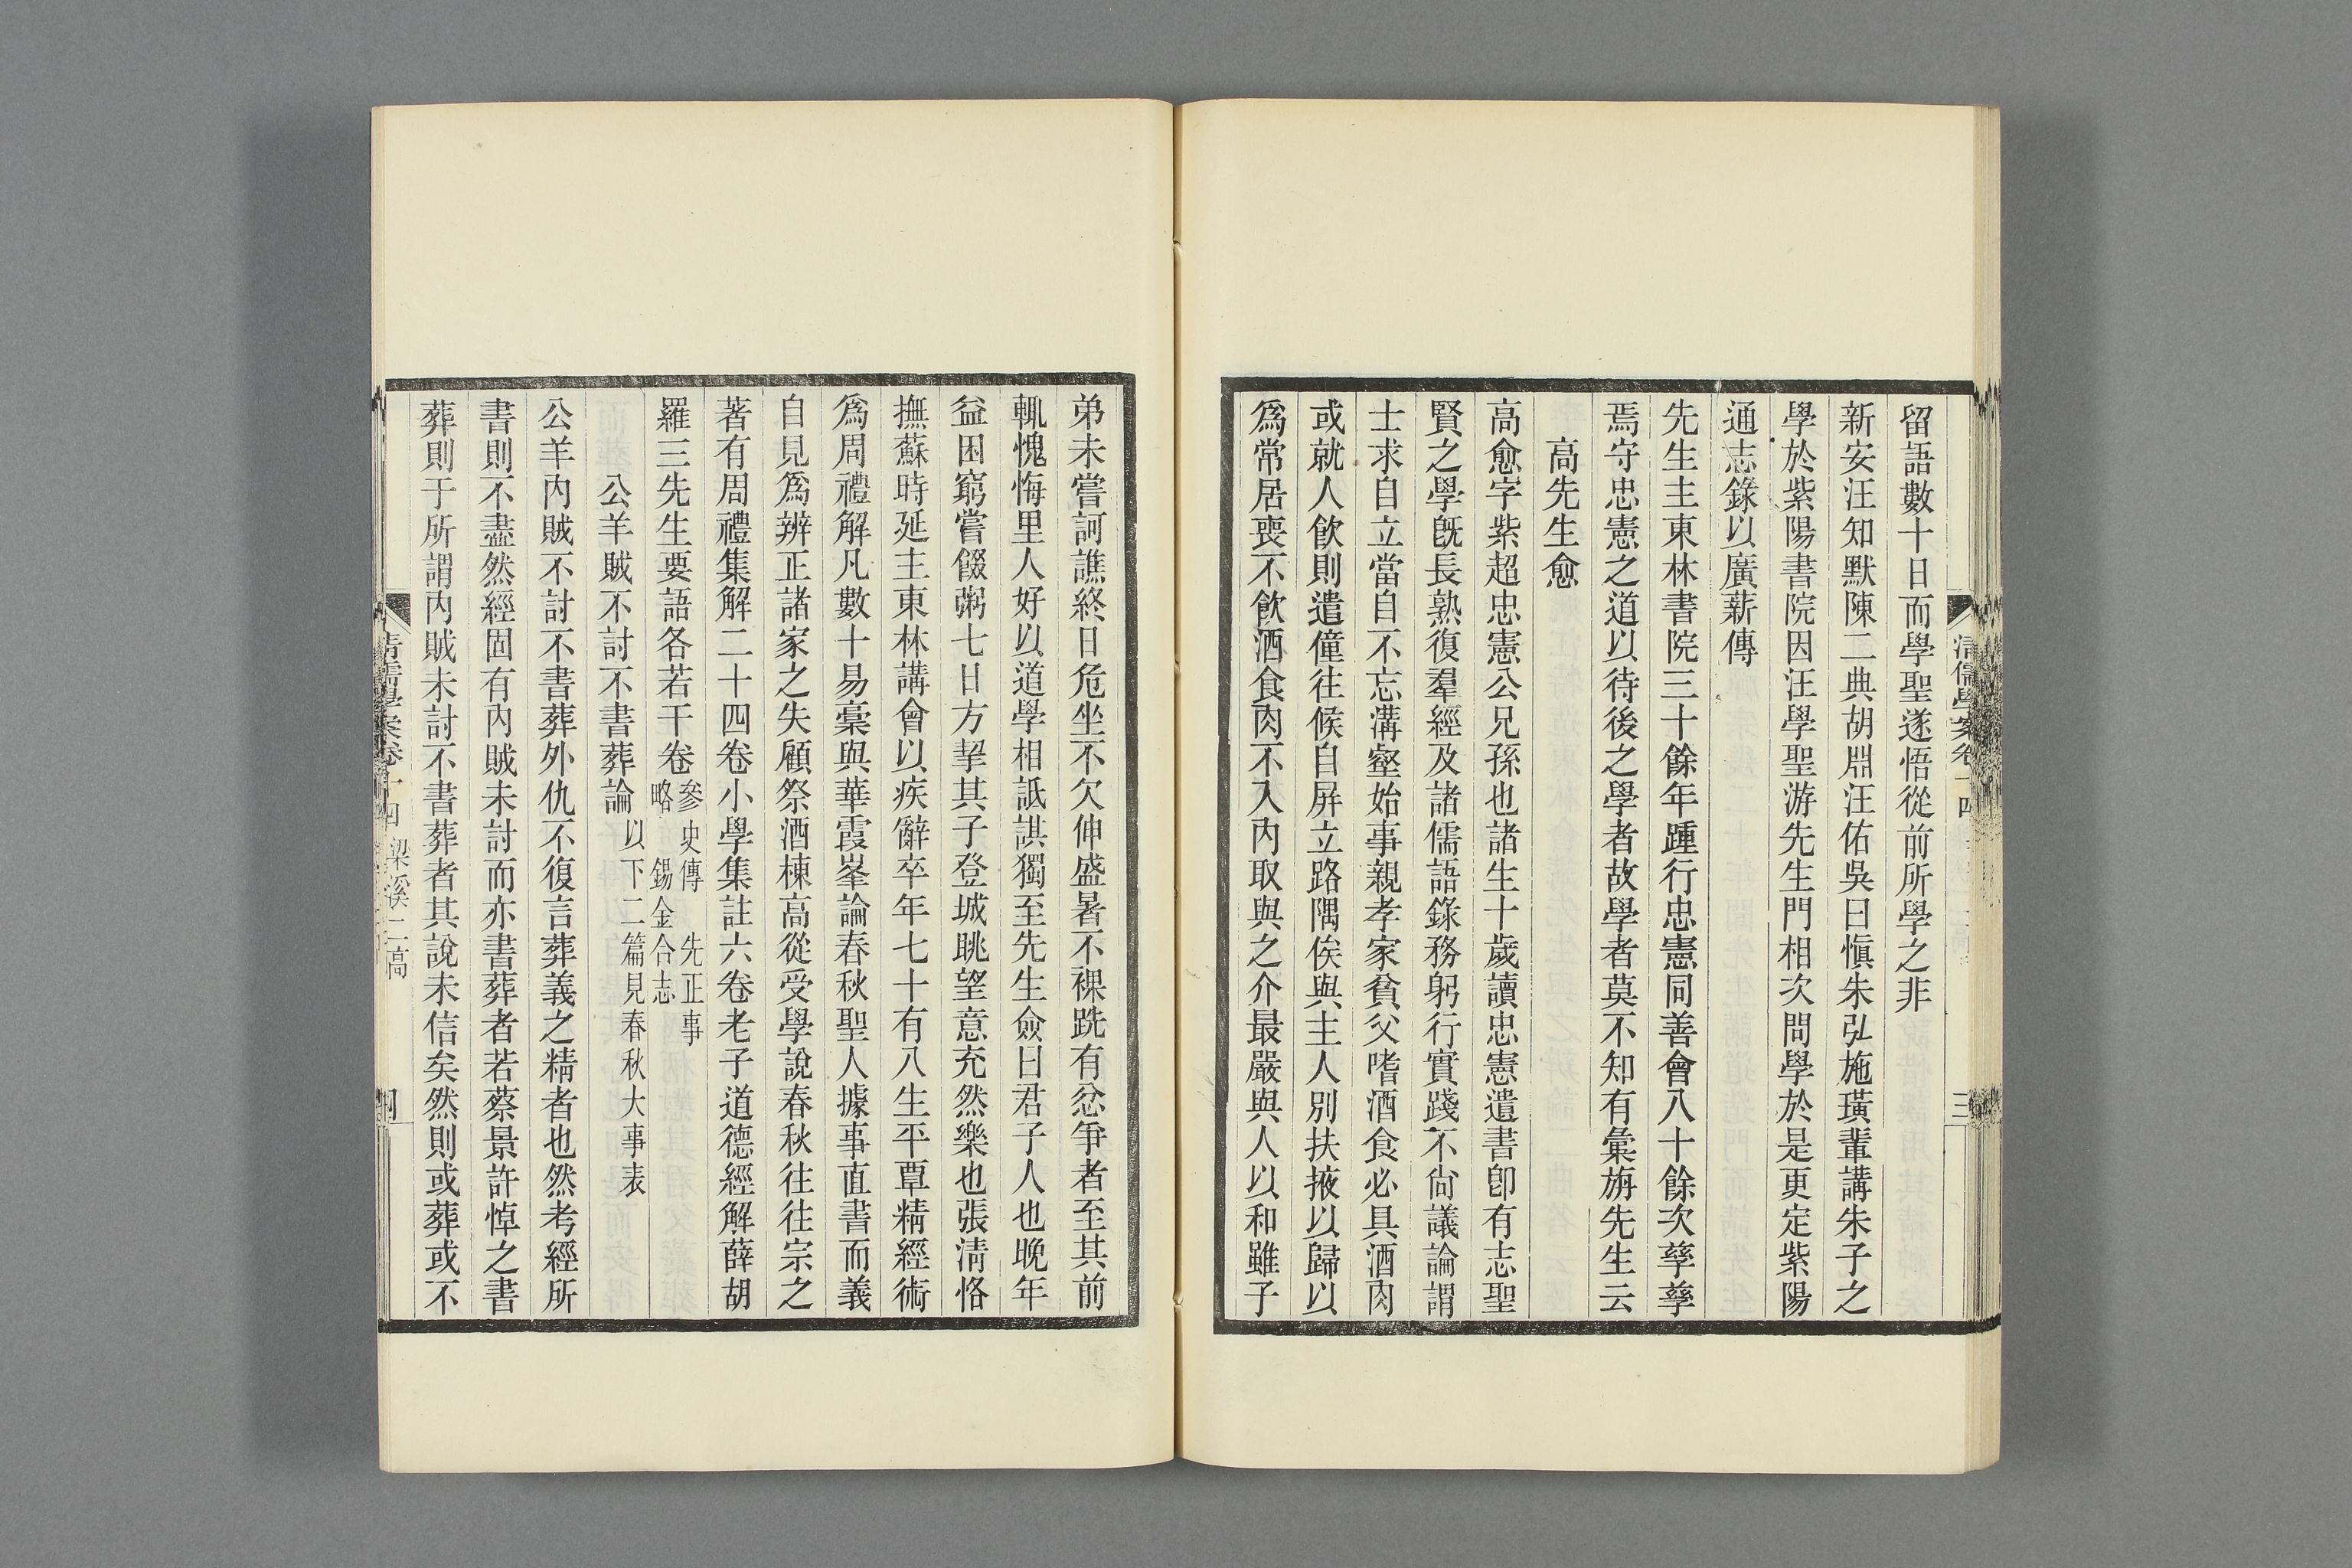 留語數十日而學聖遂悟從前所學之非
新安汪知默陳二典胡淵汪佑吳曰愼朱弘施璜輩講朱子之
學於紫陽書院因汪學聖游先生門相次問學於是更定紫陽
通志錄以廣薪傳
先生主東林書院三十餘年踵行忠憲同善會八十餘次孳孳
焉守忠憲之道以待後之學者故學者莫不知有彙旃先生云
高先生愈
高愈字紫超忠憲公兄孫也諸生十歲讀忠憲遺書卽有志聖
賢之學旣長熟復羣經及諸儒語錄務躬行實踐不尙議論謂
士求自立當自不忘溝壑始事親孝家貧父嗜酒食必具酒肉
或就人飮則遣僮往候自屛立路隅俟與主人別扶掖以歸以
爲常居喪不飮酒食肉不入內取與之介最嚴與人以和雖子
清儒學案卷十四
三
弟未嘗訶譙終日危坐不欠伸盛暑不裸跣有忿爭者至其前
輒愧悔里人好以道學相詆諆獨至先生僉曰君子人也晚年
益困窮嘗餟粥七日方挈其子登城眺望意充然樂也張淸恪
撫蘇時延主東林講會以疾辭卒年七十有八生平覃精經術
爲周禮解凡數十易稾與華霞峯論春秋聖人據事直書而義
自見爲辨正諸家之失顧祭酒棟高從受學說春秋往往宗之
著有周禮集解二十四卷小學集註六卷老子道德經解薛胡
羅三先生要語各若干卷參史傳 先正事略 錫金合志
公羊賊不討不書葬論以下二篇見春秋大事表
公羊內賊不討不書葬外仇不復言葬義之精者也然考經所
書則不盡然經固有內賊未討而亦書葬者若蔡景許悼之書
葬則于所謂內賊未討不書葬者其說未信矣然則或葬或不
清儒學案卷十四 梁溪二高
四